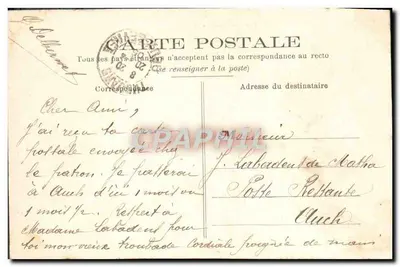 CARTE POSTALE
Tous les pays étrangers n'acceptent pas la correspondance au recto
(se renseigner à la poste)
Correspondance
Adresse du destinataire
Cher Ami,
J'ai reçu ta carte
postale envoyée chez
le patron. Je passerai
à Auch d'ici 1 mois ou
1 mois ½. Respect à
Madame Labadens pour
toi mon vieux troubade Cordiale poignée de mains
Monsieur
J. Labadens de
Poste Restante
Auch